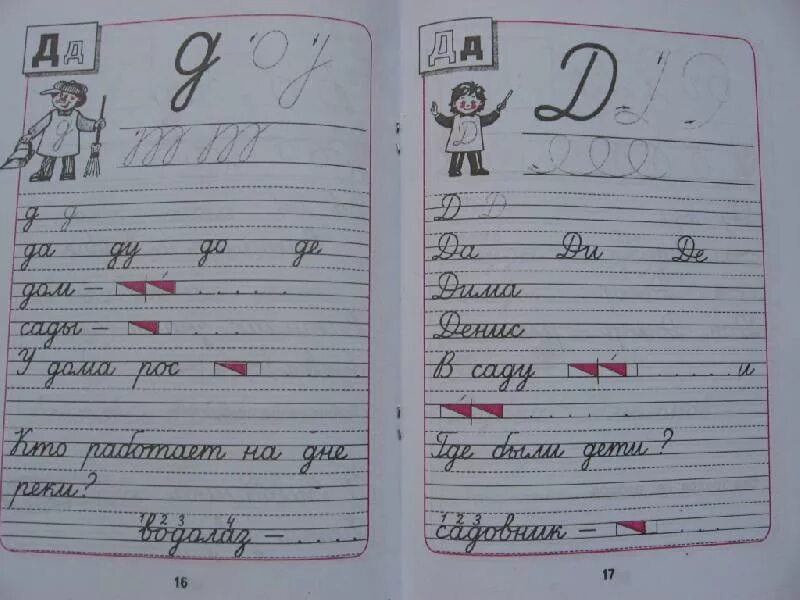 Дд
д
д
д д
да ду до де
дом – . . . . . .
сады – . . . .
У дома рос . . . . . .
Кто работает на дне
реки?
1 2 3 4
водолаз – . . . .
16
Дд
Д
Д
Д Д
Да Ди Де
Дима
Денис
В саду . . . . . и
. . . . . .
Где были дети?
1 2 3
садовник – . . . .
17